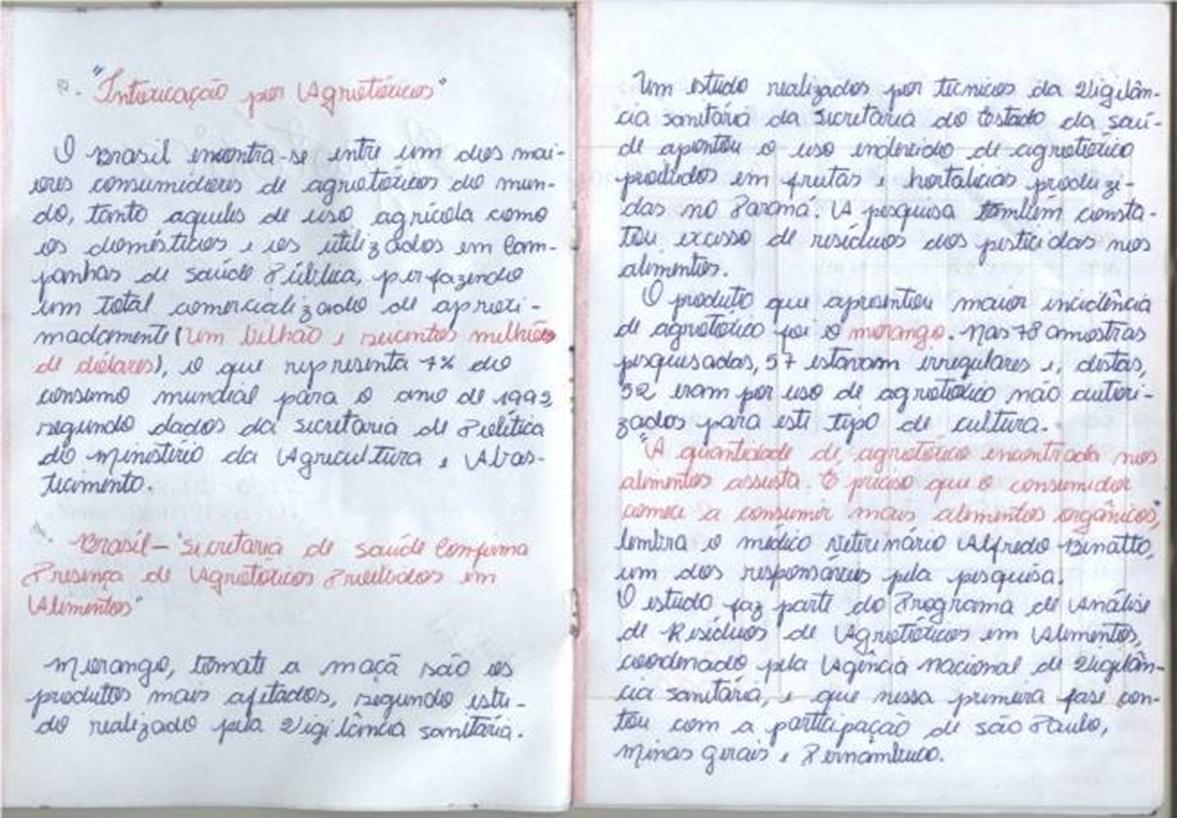 "Intoxicação por Agrotóxicos"
O Brasil encontra-se entre um dos mai-
ores consumidores de agrotóxicos do mun-
do, tanto aqueles de uso agrícola como
os domésticos e os utilizados em Cam-
panhas de saúde Pública, perfazendo
um total comercializado de aproxi-
madamente (um bilhão e duzentos milhões
de dólares), o que representa 7% do
consumo mundial para o ano de 1992,
segundo dados da secretaria de Política
do Ministério da Agricultura e Abas-
tecimento.
Brasil - "Secretaria de saúde Confirma
Presença de Agrotóxicos Proibidos em
Alimentos"
Morango, tomate a maçã são os
produtos mais afetados, segundo estu-
do realizado pela Vigilância sanitária.
Um estudo realizados por técnicos da Vigilân-
cia sanitária da Secretaria do Estado da saú-
de apontou o uso indevido de agrotóxico
proibidos em frutas e hortalicas produzi-
das no Paraná. A pesquisa também consta-
tou excesso de resíduos dos pesticidas nos
alimentos.
O produto que apresentou maior incidência
de agrotóxico foi o morango. Nas 78 amostras
pesquisadas, 57 estavam irregulares e, destas,
52 eram por uso de agrotóxico não autori-
zados para este tipo de cultura.
"A quantidade de agrotóxico encontrada nos
alimentos assusta. É preciso que o consumidor
comece a consumir mais alimentos orgânicos",
lembra o médico veterinário Alfredo Benatto,
um dos responsáveis pela pesquisa.
O estudo faz parte do Programa de Análise
de Resíduos de Agrotóxicos em Alimentos,
coordenado pela Agência nacional de Vigilân-
cia sanitária, e que nessa primera fase con-
tou com a participação de são Paulo,
Minas Gerais e Pernambuco.